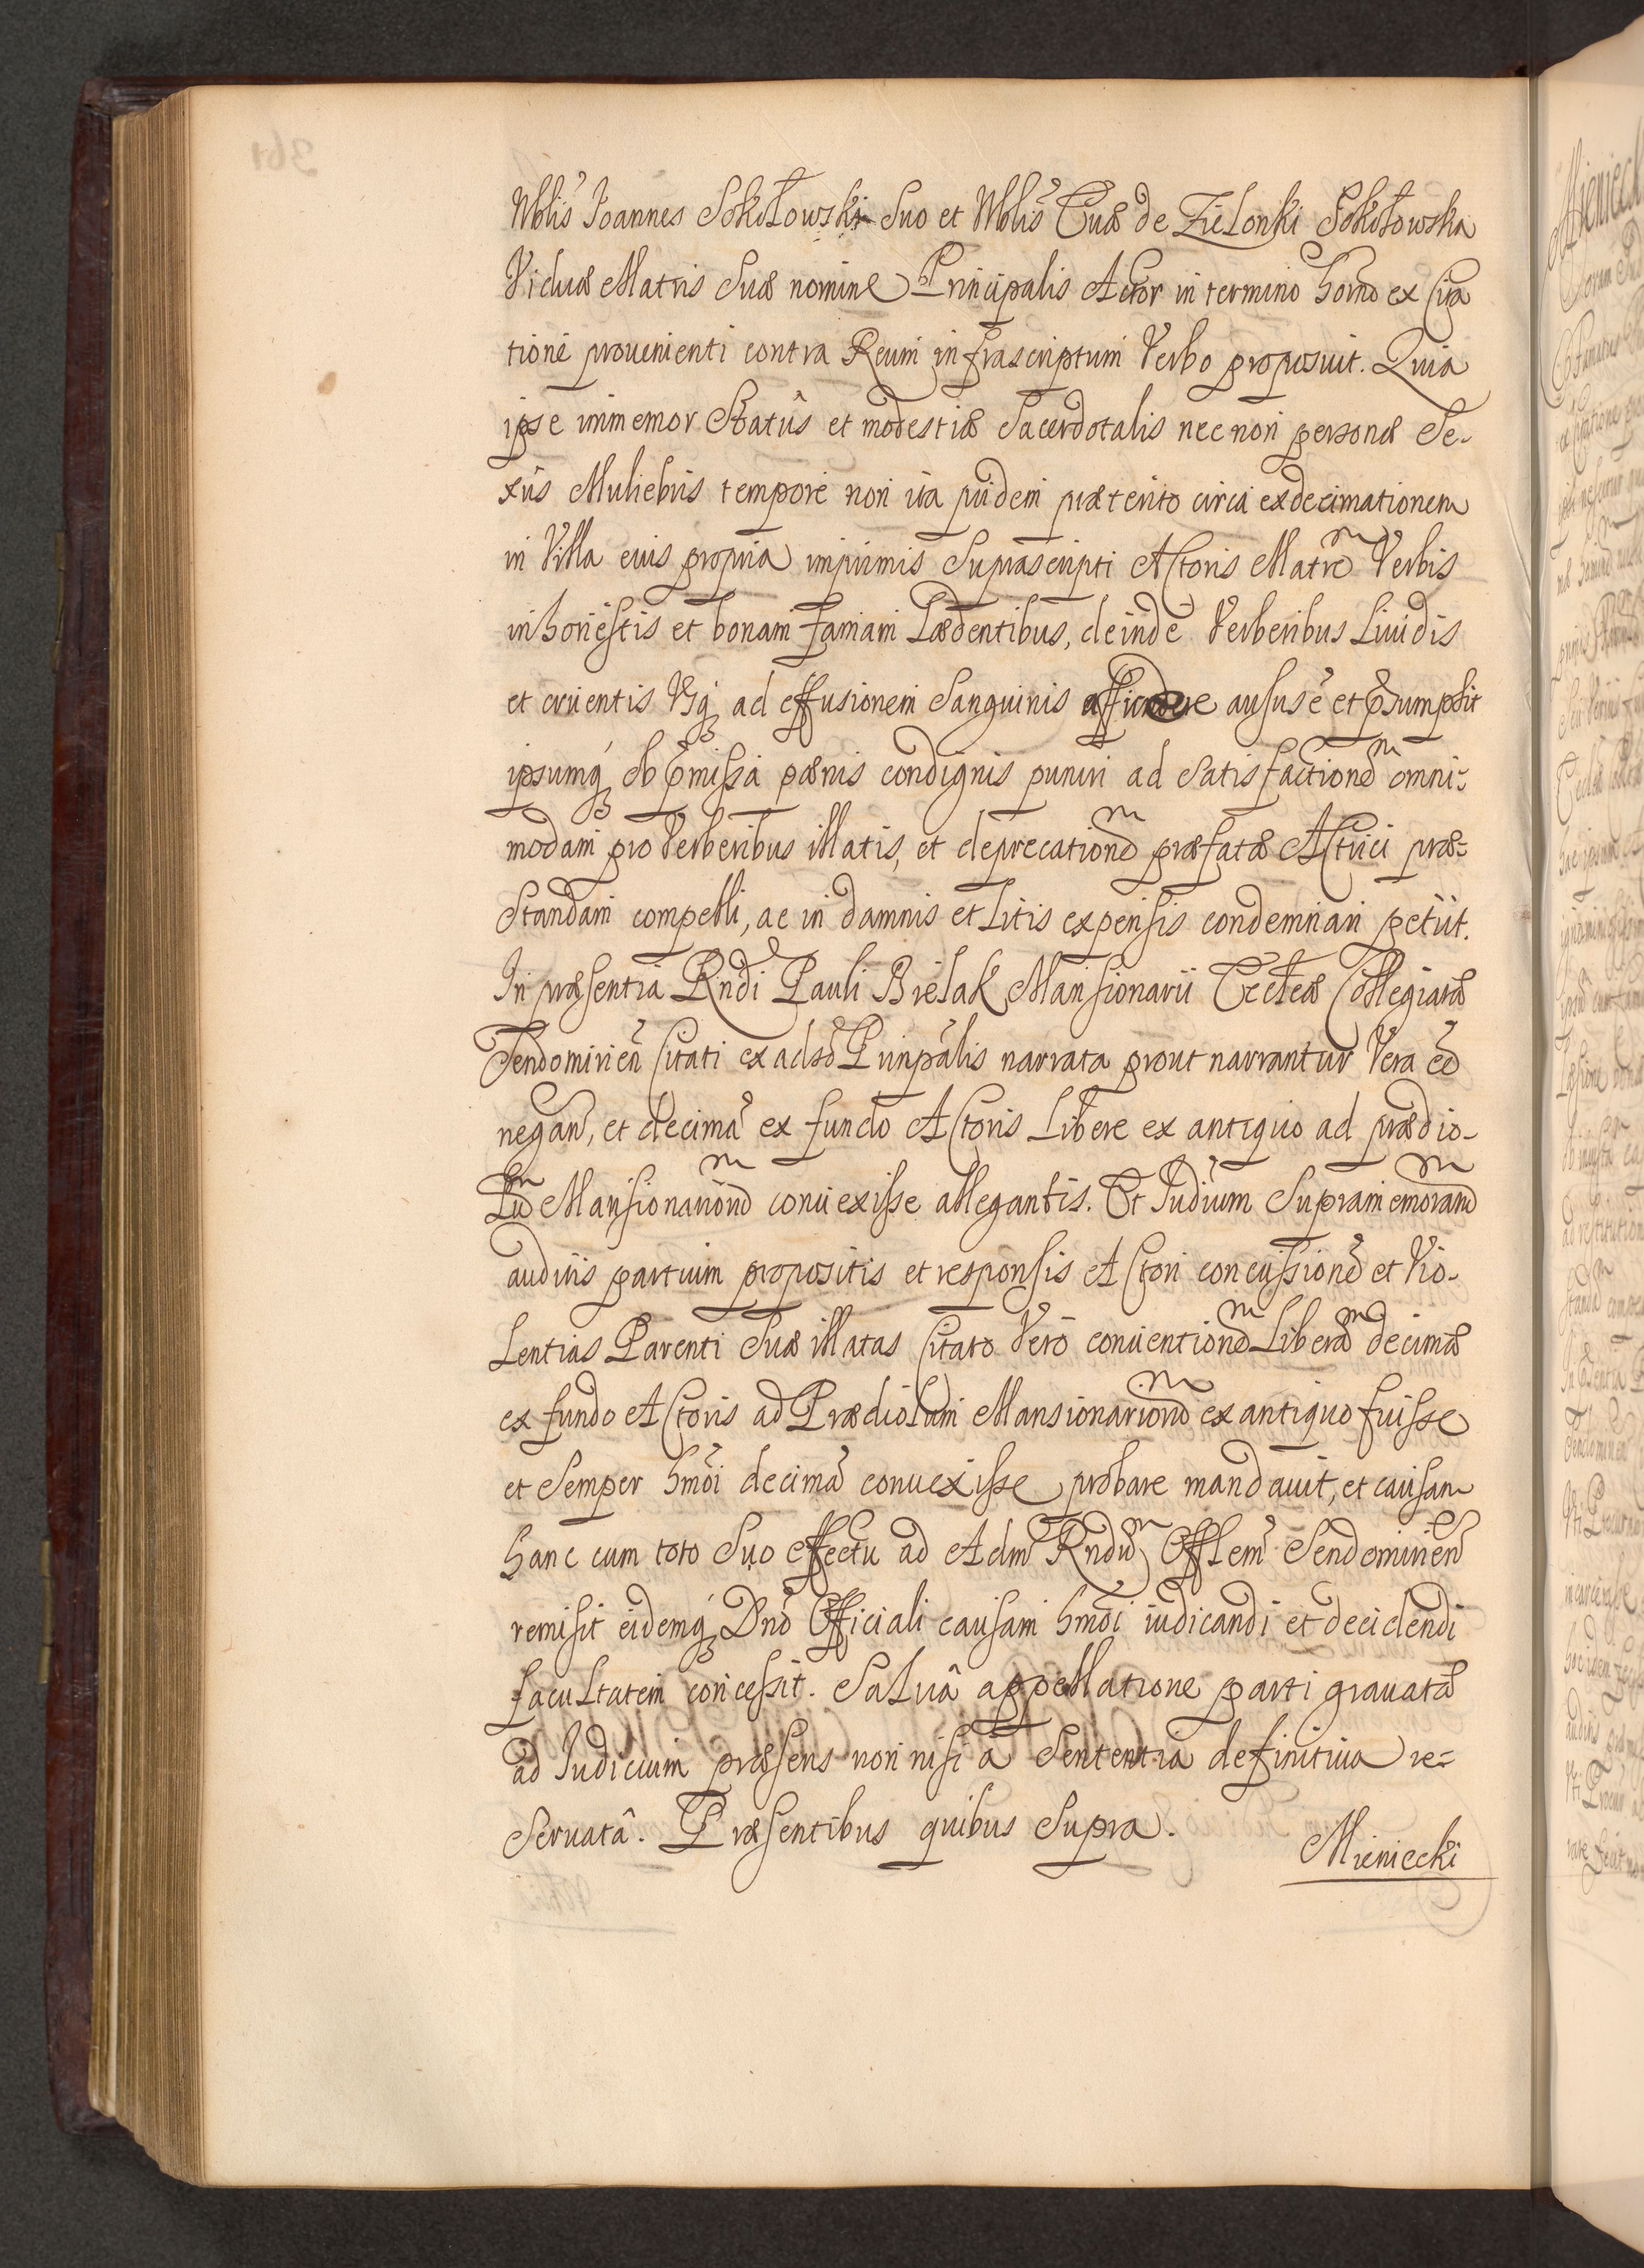 Nblis Joannes Sokołowski Suo et Nblis Evæ de Zielonki Sokołowska
Viduæ Matris Suæ nomine Principalis Actor in termino horno ex Cita
tione prouenienti contra Reum infrascriptum Verbo proposuit. Quia
ipse immemor Statûs et modestiæ Sacerdotalis nec non personæ Se-
xûs Muliebris tempore non ita pridem præterito circa exdecimationem
in Villa eius propria imprimis Suprascripti Actoris Matrem Verbis
inhonestis et bonam famam Lædentibus, deinde Verberibus Liuidis
et cruentis Vsq ad effusionem Sanguinis afficere ausus e et prsumpsit
ipsumq ob pmissa pænis condignis puniri ad Satisfactionem omni-
modam pro Verberibus illatis, et deprecationem præfatæ Actrici præ-
Standam compelli, ac in damnis et Litis expensis condemnari petiit.
In præsentia Rndi Pauli Bielak Mansionarii Eccleæ Collegiatæ
Sendomirien Citati ex adso Prinpalis narrata prout narrantur Vera ee
negan, et decima ex fundo Actoris Libere ex antiquo ad prædio-
Lum Mansionariorum conuexisse allegantis. Et Judium Supramemoram
auditis partium propositis et responsis Actori concussione et Vio-
Lentias Parenti Suæ illatas Citato Vero conuentionem Liberam decimæ
ex fundo Actoris ad Prædiolum Mansionariorum ex antiquo fuisse
et Semper hmoi decima conuexisse probare mandauit, et causam
hanc cum toto Suo effectu ad Adm Rndum Offlem Sendomirien
remisit eidemq Dno Officiali causam hmoi iudicandi et decidendi
facultatem concessit. Saluâ appellatione parti grauatæ
ad Judicium præsens non nisi à Sententia definitiua re-
Seruatâ. Præsentibus quibus Supra.
Mieniecki